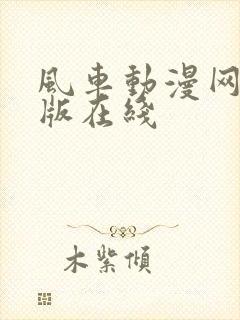 風車動漫网
版在綫
木紫傾